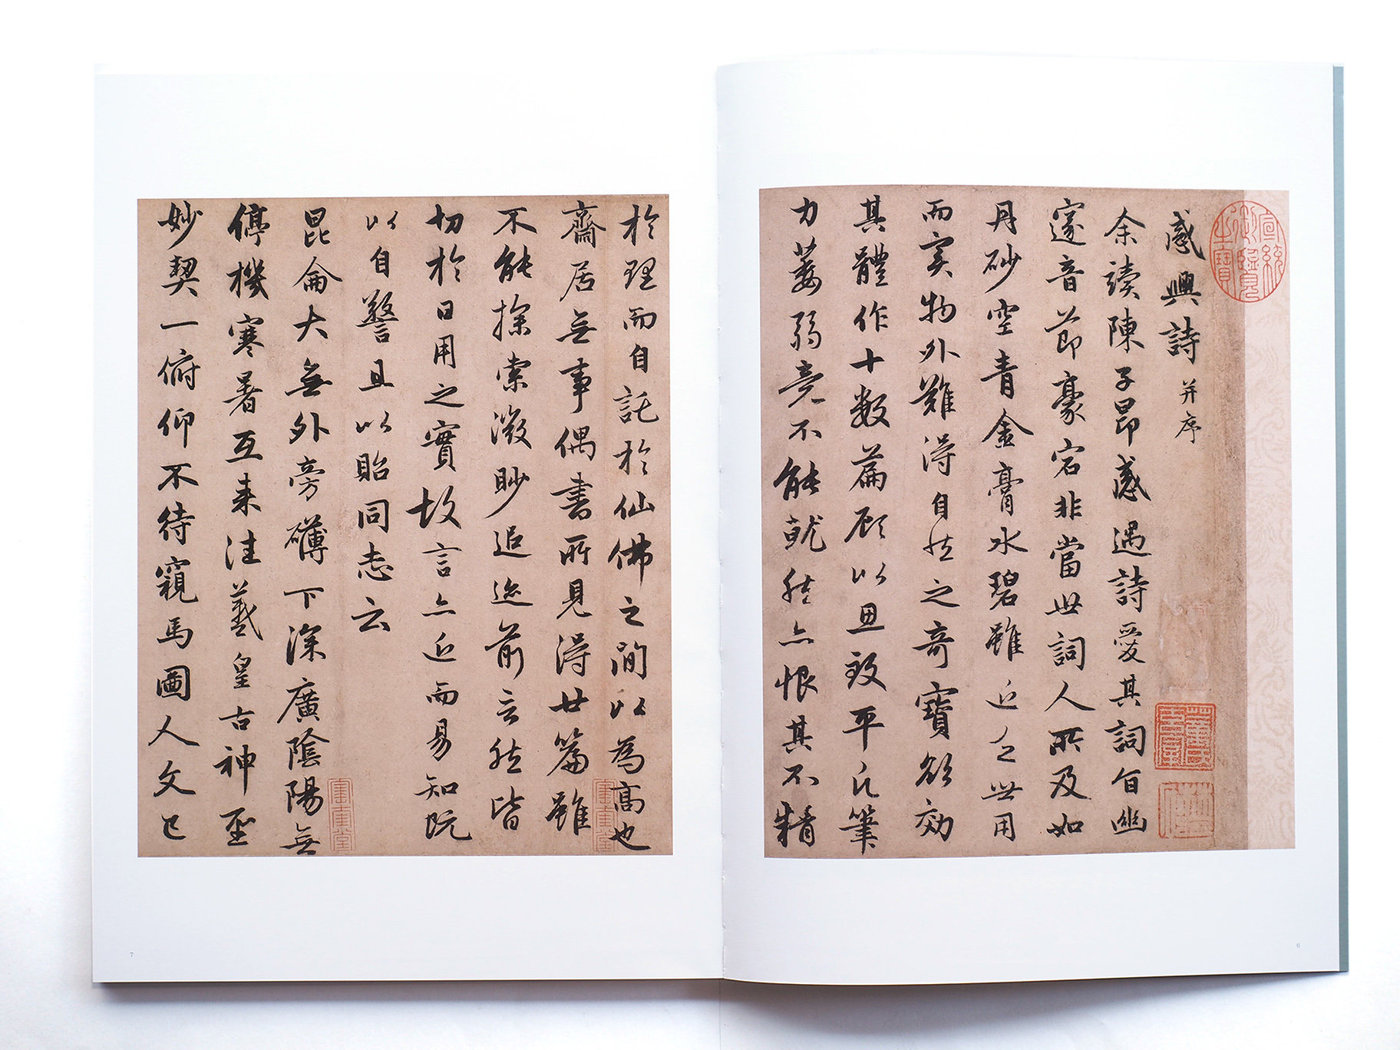 感興詩 并序
余讀陳子昂感遇詩愛其詞旨幽
邃音節豪宕非當世詞人所及如
丹砂空青金膏水碧雖近乏世用
而實物外難得自然之奇寶欲效
其體作十數篇顧以思致平凡筆
力萎弱竟不能就然亦恨其不精
於理而自託於仙佛之間以為高也
齋居無事偶書所見得廿篇雖
不能探索微眇追迹前言然皆
切於日用之實故言亦近而易知既
以自警且以貽同志云
昆侖大無外旁礴下深廣陰陽無
停機寒暑互来往羲皇古神聖
妙契一俯仰不待窺馬圖人文已
宣統御覽之寶
6
7